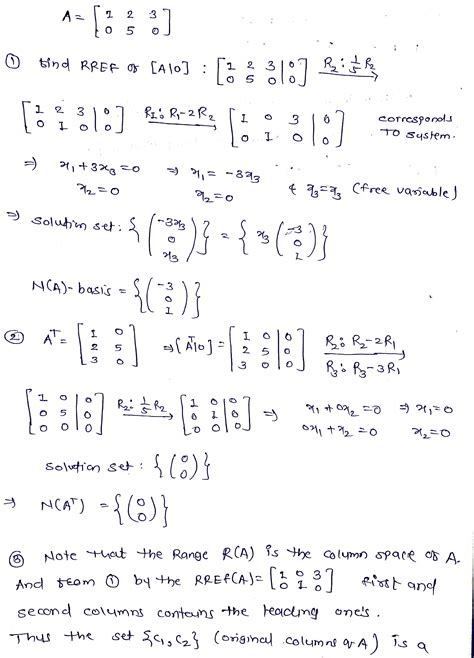 A = [1 2 3
0 5 0]
① find RREF of [A|0] : [1 2 3 | 0
0 5 0 | 0] R₂: ⅕R₂ →
[1 2 3 | 0
0 1 0 | 0] R₁: R₁-2R₂ → [1 0 3 | 0
0 1 0 | 0] corresponds
TO system.
⇒ x₁+3x₃=0 ⇒ x₁ = -3x₃
x₂=0 x₂=0 & x₃=x₃ (free variable)
⇒ Solution set: { (-3x₃
0
x₃) } = { x₃ (-3
0
1) }
N(A)-basis = { (-3
0
1) }
② Aᵀ = [1 0
2 5
3 0] ⇒ [Aᵀ|0] = [1 0 | 0
2 5 | 0
3 0 | 0] R₂: R₂-2R₁ →
R₃: R₃-3R₁
[1 0 | 0
0 5 | 0
0 0 | 0] R₂: ⅕R₂ → [1 0 | 0
0 1 | 0
0 0 | 0] ⇒ x₁+0x₂=0 ⇒ x₁=0
0x₁+x₂=0 x₂=0
Solution set : { (0
0) }
⇒ N(Aᵀ) = { (0
0) }
③ Note that the Range R(A) is the column space of A.
And from ① by the RREF(A)= [1 0 3
0 1 0] first and
second columns contains the leading one's.
Thus the set {c₁, c₂} (original columns of A) is a